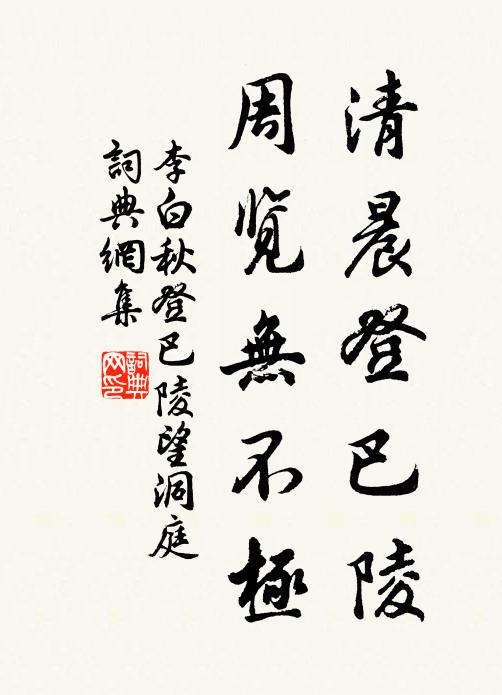 清晨登巴陵
周览無不極
李白秋登巴陵望洞庭
詞典網集
詞典
网印